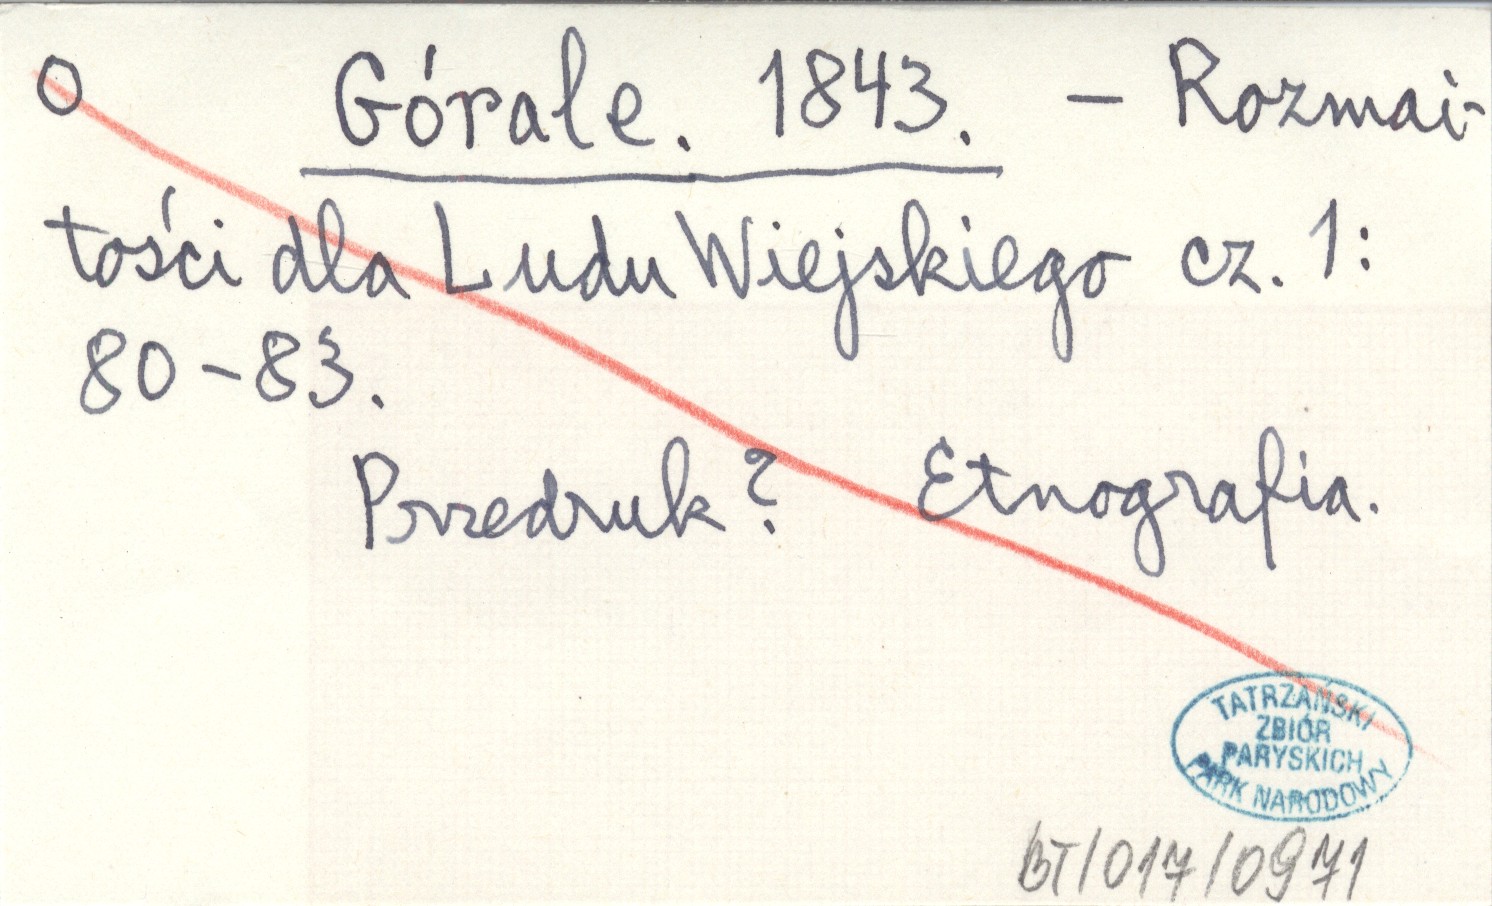 O Górale. 1843. – Rozmai-
tości dla Ludu Wiejskiego cz. 1:
80–83.
Przedruk? Etnografia.
TATRZAŃSKI
ZBIÓR
PARYSKICH
PARK NARODOWY
BT/017/0971